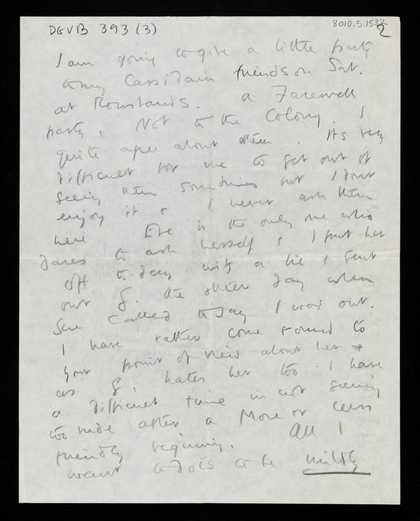 DGVB 393 (3)
8010.5.1522
2
I am going to give a little party
to my Cassidain friends on Sat.
at Rowlands. a Farewell
party, Not to the Colony. I
quite agree about them. its very
difficult for me to get out of
seeing them sometimes but I dont
enjoy it & I never ask them
here Eve is the only one who
dares to ask herself & I put her
off today with a lie & sent
out G. the other day when
she called today I was out.
I have rather come round to
your point of view about her &
as G. hates her too I have
a difficult time in not seeming
too rude after a more or less
friendly beginning. All I
want to do is to be mildly